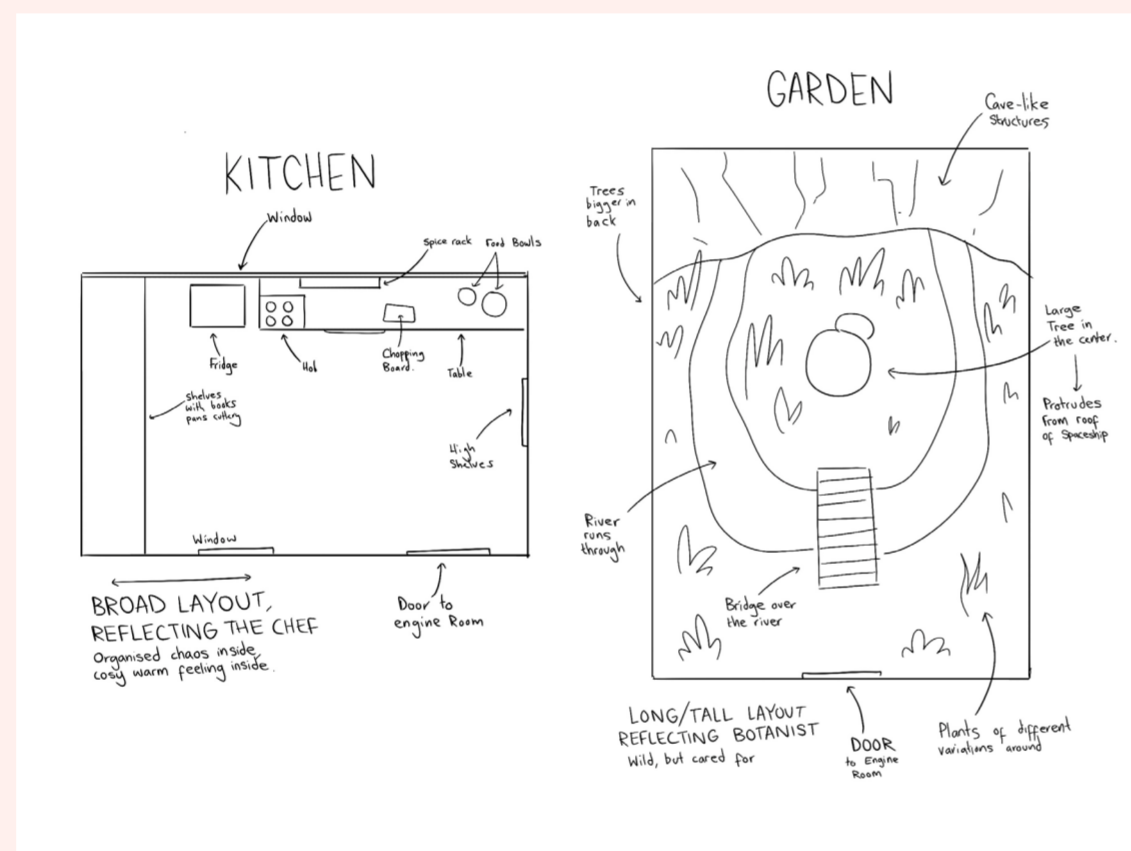 KITCHEN
Window
Spice rack
Food Bowls
Fridge
Hob
Chopping
Board.
Table
shelves
with books
pans cutlery
High
Shelves
Window
BROAD LAYOUT,
REFLECTING THE CHEF
Organised chaos inside,
cosy warm feeling inside.
Door to
engine Room
GARDEN
Cave-like
Structures
Trees
bigger in
back
Large
Tree in
the center.
Protrudes
from roof
of Spaceship
River
runs
through
Bridge over
the river
LONG/TALL LAYOUT
REFLECTING BOTANIST
Wild, but cared for
DOOR
to Engine
Room
Plants of different
variations around